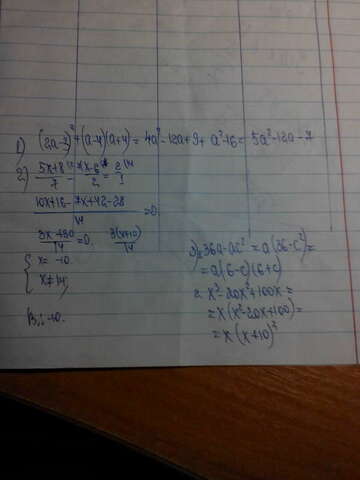 1) (2a-3)²+(a-4)(a+4)=4a²-12a+9+a²-16=5a²-12a-7
2) (5x+8)/7 - (x-6)/2 = 2/1
(10x+16-7x+42-28)/14 =0
(3x+30)/14 =0. 3(x+10)/14
{ x= -10
x≠14
3) 1. 36a-ac²=a(36-c²)=
=a(6-c)(6+c)
2. x³-20x²+100x=
=x(x²-20x+100)=
=x(x+10)²